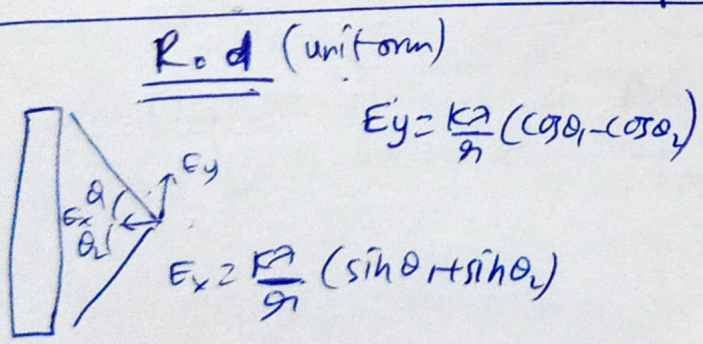 Rod (uniform)
Ey = Kλ/r (cosθ₁ - cosθ₂)
Ey
θ₁
Ex
θ₂
Ex = Kλ/r (sinθ₁ + sinθ₂)